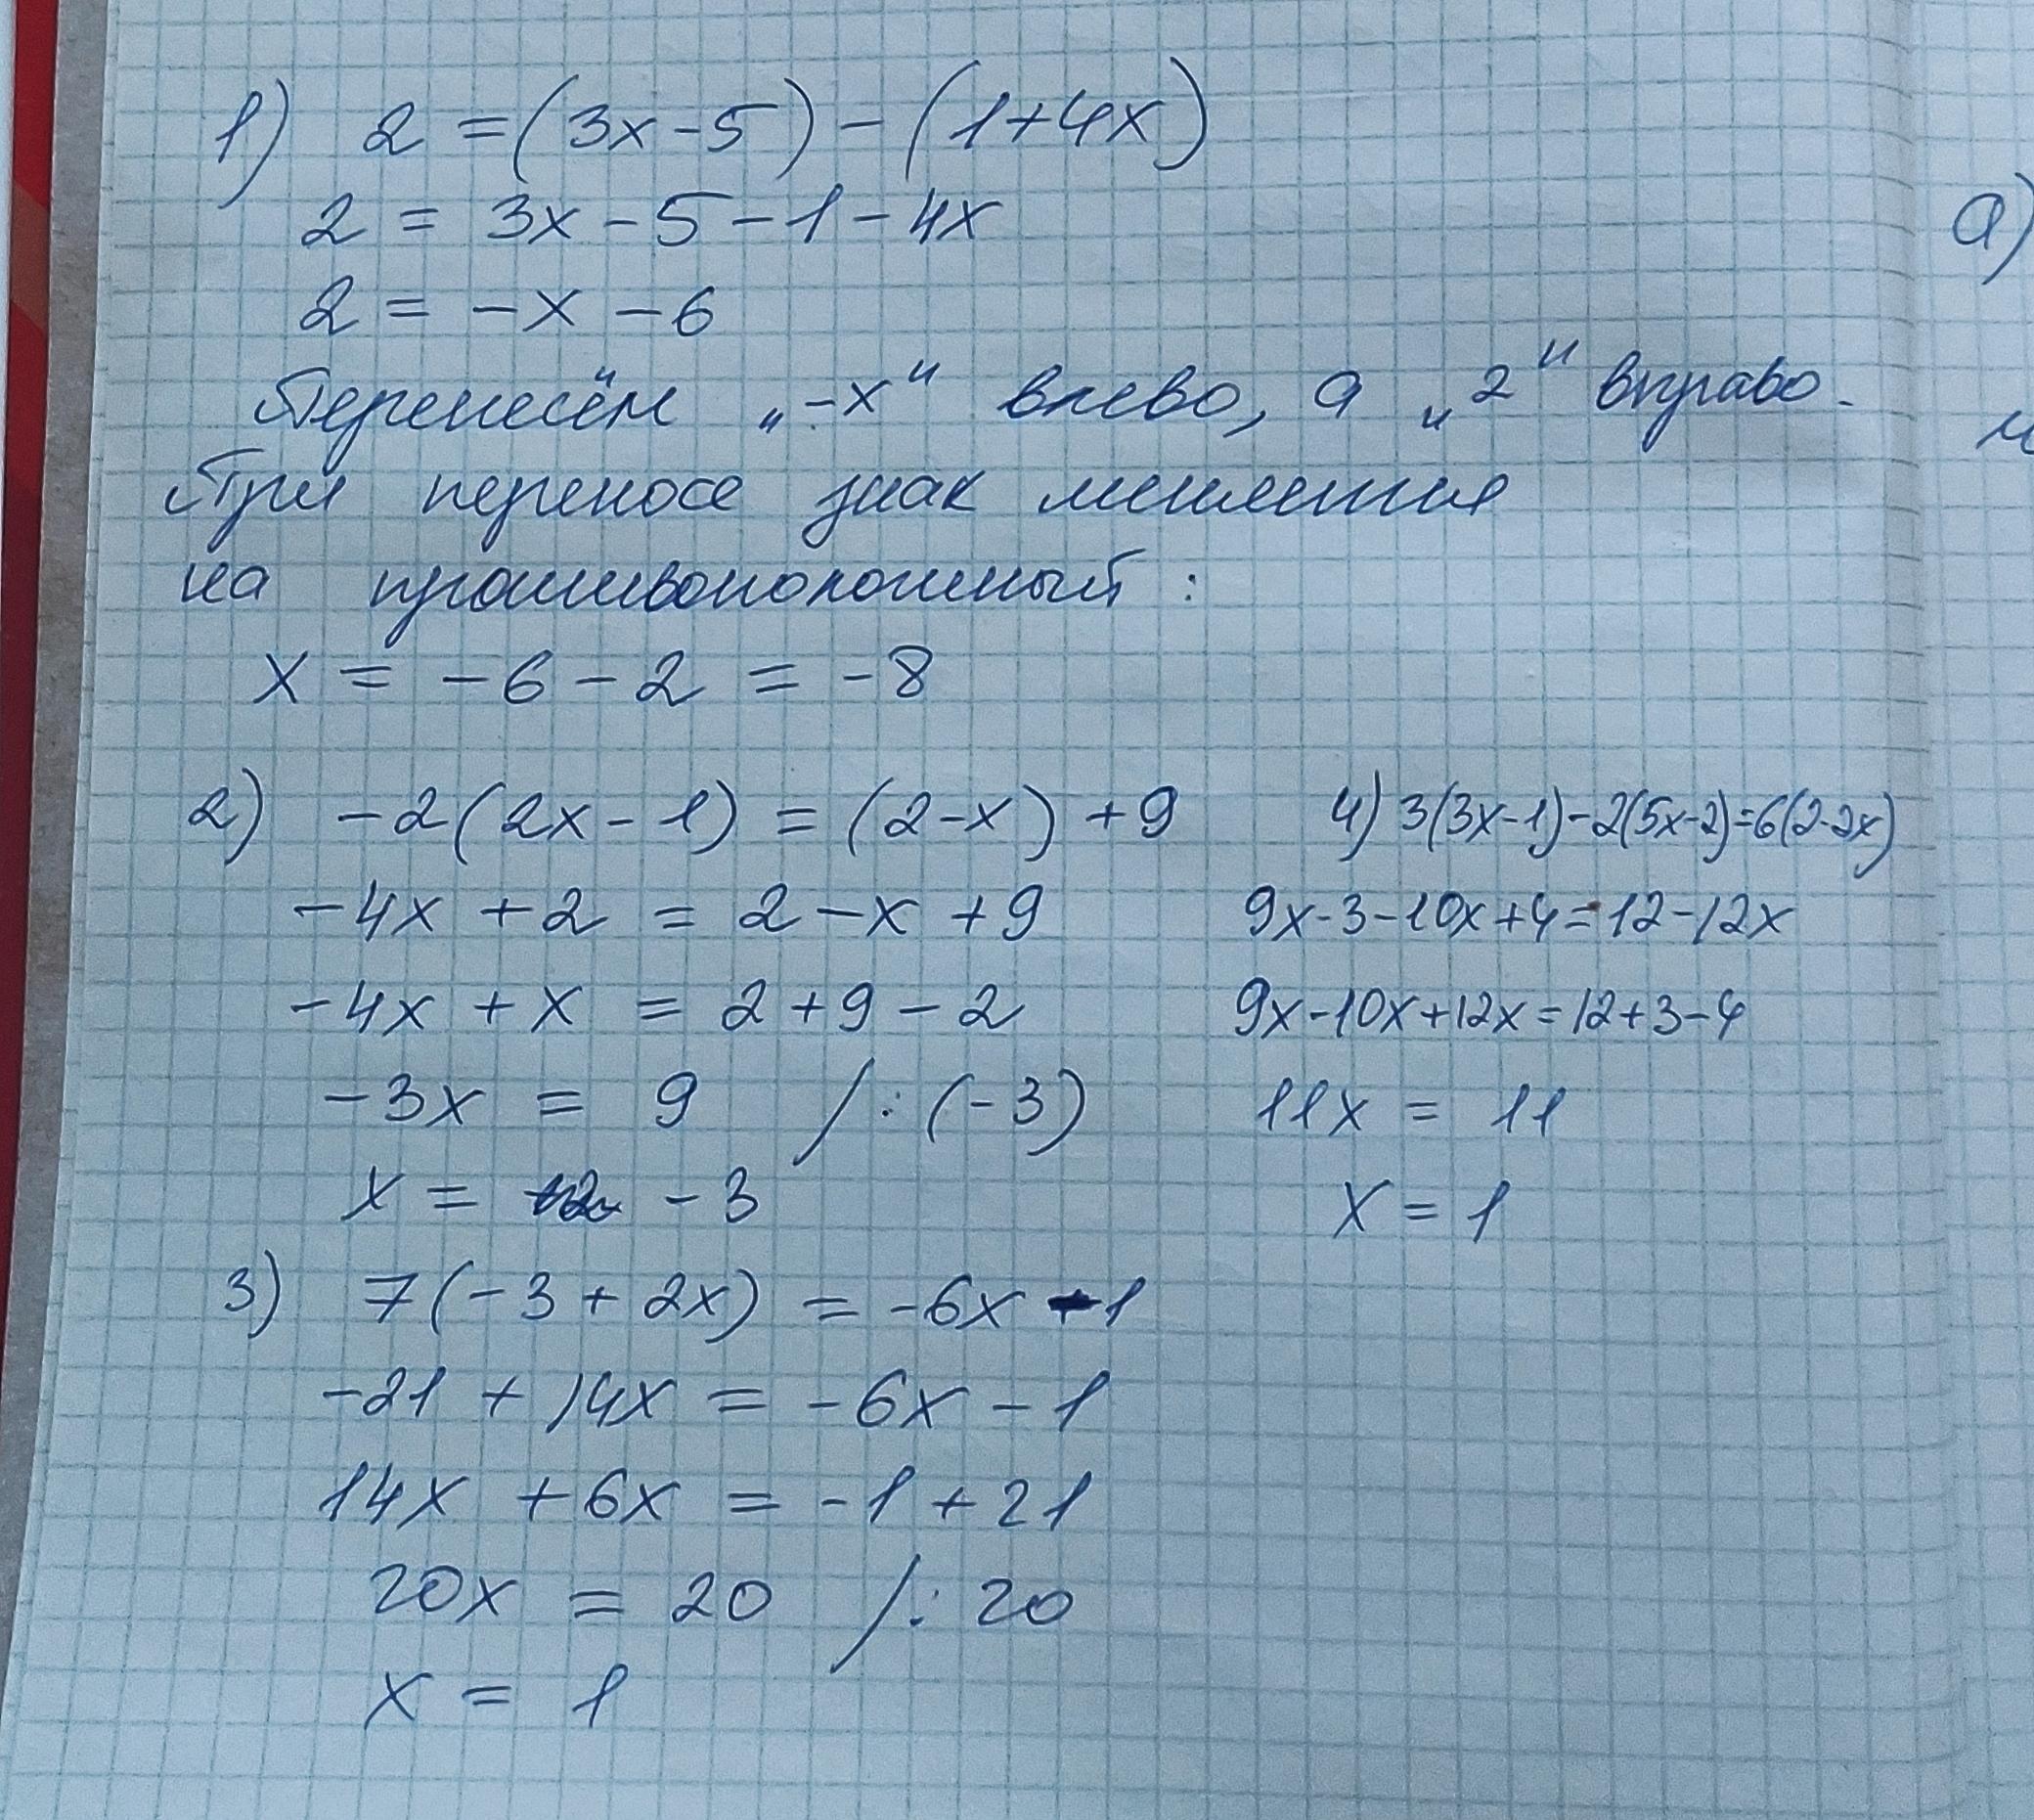 1) 2 = (3x - 5) - (1 + 4x)
2 = 3x - 5 - 1 - 4x
2 = - x - 6
Перенесём „-x" влево, а „2" вправо.
При переносе знак меняется
на противоположный:
x = - 6 - 2 = - 8
2) - 2(2x - 1) = (2 - x) + 9
- 4x + 2 = 2 - x + 9
- 4x + x = 2 + 9 - 2
- 3x = 9 /: (-3)
x = - 3
3) 7(- 3 + 2x) = - 6x - 1
- 21 + 14x = - 6x - 1
14x + 6x = - 1 + 21
20x = 20 /: 20
x = 1
4) 3(3x-1)-2(5x-2)=6(2-2x)
9x-3-10x+4=12-12x
9x-10x+12x=12+3-4
11x = 11
x = 1
а)